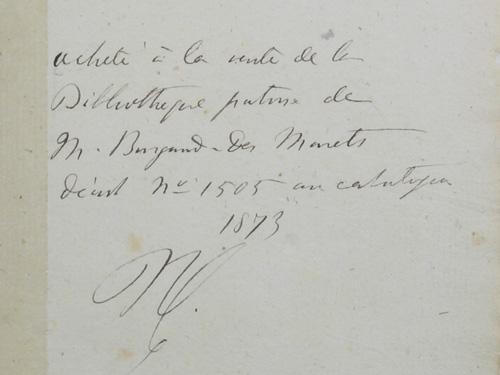 acheté à la vente de la
Bibliothèque patoise de
M. Burgaud-Des Marets
décrit No 1505 au catalogue
1873